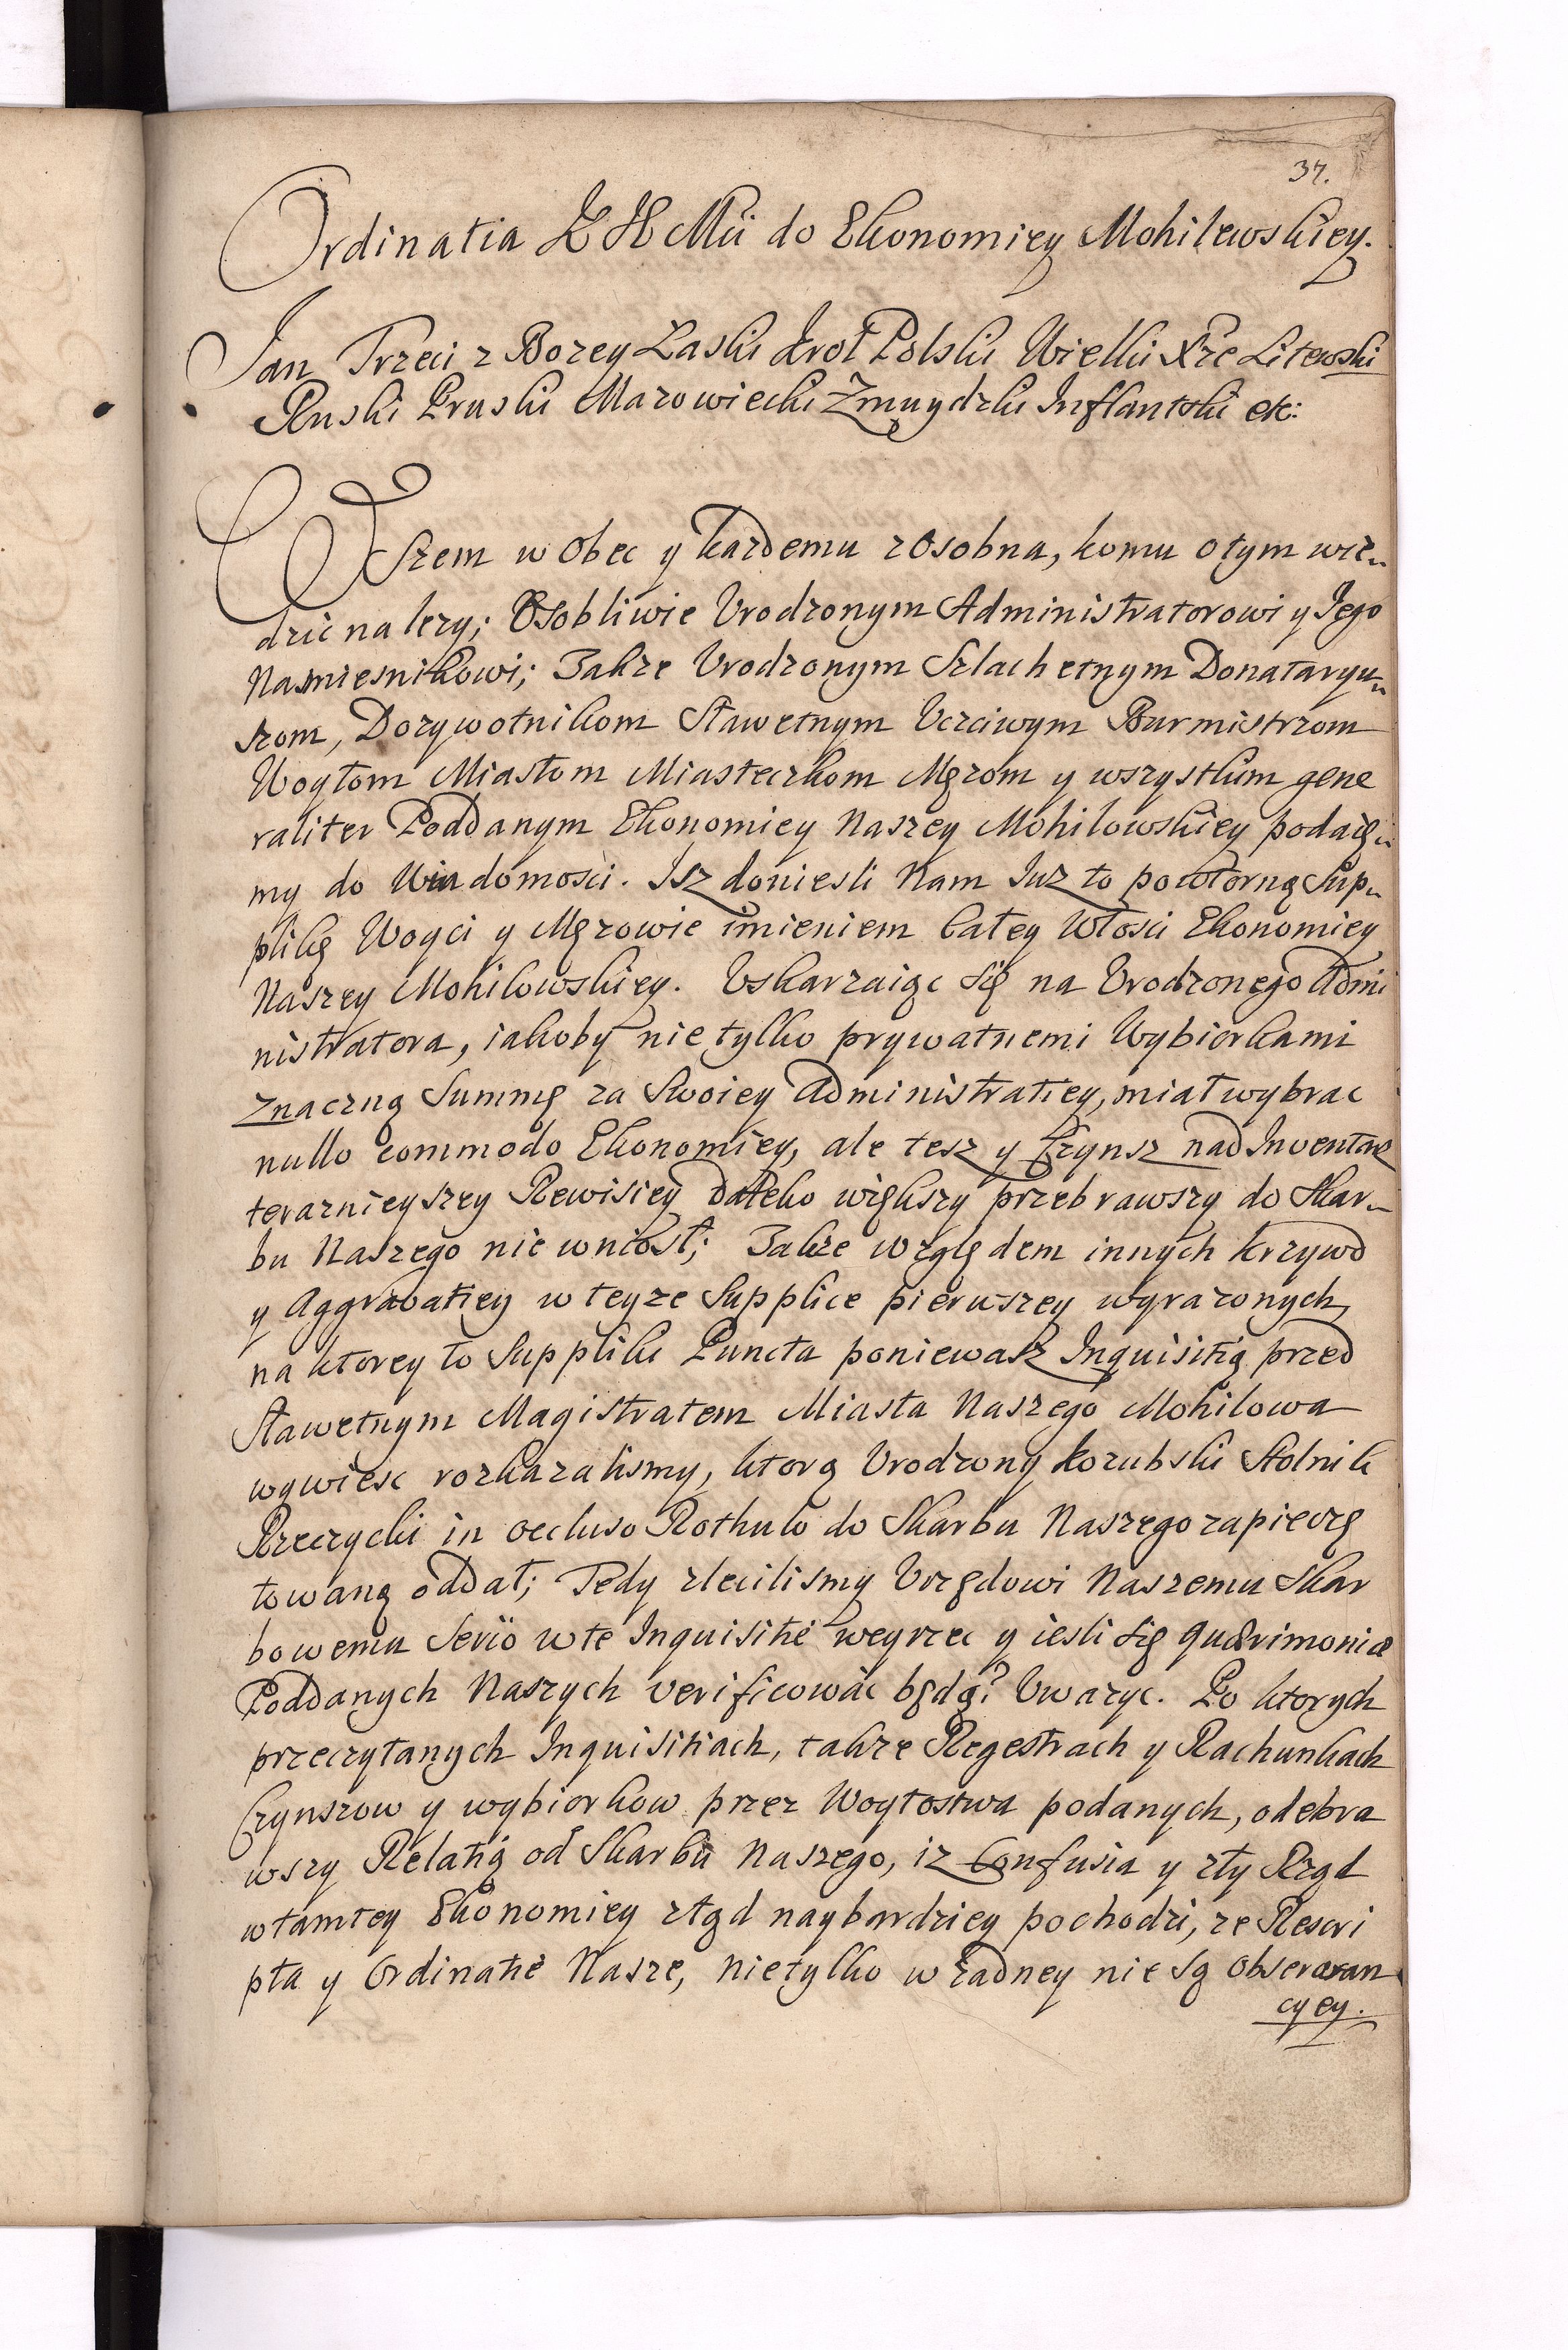 37.
Ordinatia J K Mci do Ekonomiey Mohilewskiey.
Jan Trzeci z Bozey Łaski Krol Polski Wielki Xże Litewski
Ruski Pruski Mazowiecki Żmuydzki Inflantski etc:
WSzem w Obec y kazdemu z Osobna, komu o tym wie„
dzić nalezy; Osobliwie Urodzonym Administratorowi y Jego
Namiesnikowi; Takze Urodzonym Szlachetnym Donataryu„
szom, Dozywotnikom Sławetnym Uczciwym Burmistrzom
Woytom Miastom Miasteczkom Męzom y wszystkim gene
raliter Poddanym Ekonomiey Naszey Mohilowskiey podaię„
my do Wiadomości. Isz doniesli Nam Iuz to powtorną Sup„
pliką Woyci y Męzowie imieniem Całey Włosci Ekonomiey
Naszey Mohilowskiey. Uskarzaiąc się na Urodzonego Admi
nistratora, iakoby nie tylko prywatnemi Wybiorkami
znaczną Summę za Swoiey Administratiey, miał wybrac
nullo commodo Ekonomiey, ale tesz y Czynsz nad Inventarz
terazniey szey Rewisiey daleko większy przebrawszy do Skar„
bu Naszego nie wniosł; Takze względem innych krzywd
y Aggravatiey w teyze Supplice pierwszey wyrazonych,
na ktorey to Suppliki Puncta poniewasz Inquisitią przed
Sławetnym Magistratem Miasta Naszego Mohilowa
wywiesc rozkazalismy, ktorą Urodzony Kozubski Stolnik
Rzeczycki in occluso Rothulo do Skarbu Naszego zapieczę
towaną oddał; Tedy zlecilismy Urzędowi Naszemu Skar
bowemu Serio w te Inquisitie weyrzec y iesli się quærimoniæ
Poddanych Naszych verificowác będą? Uwazyc. Po ktorych
przeczytanych Inquisitiach, takze Regestrach y Rachunkach
Czynszow y wybiorkow przez Woytostwa podanych, odebra
wszy Relatią od Skarbu Naszego, iz Confusia y zły Rząd
w tamtey Ekonomiey ztąd naybardziey pochodzi, ze Rescri
pta y Ordinatie Nasze, nie tylko w żadney nie są observan
cyey.